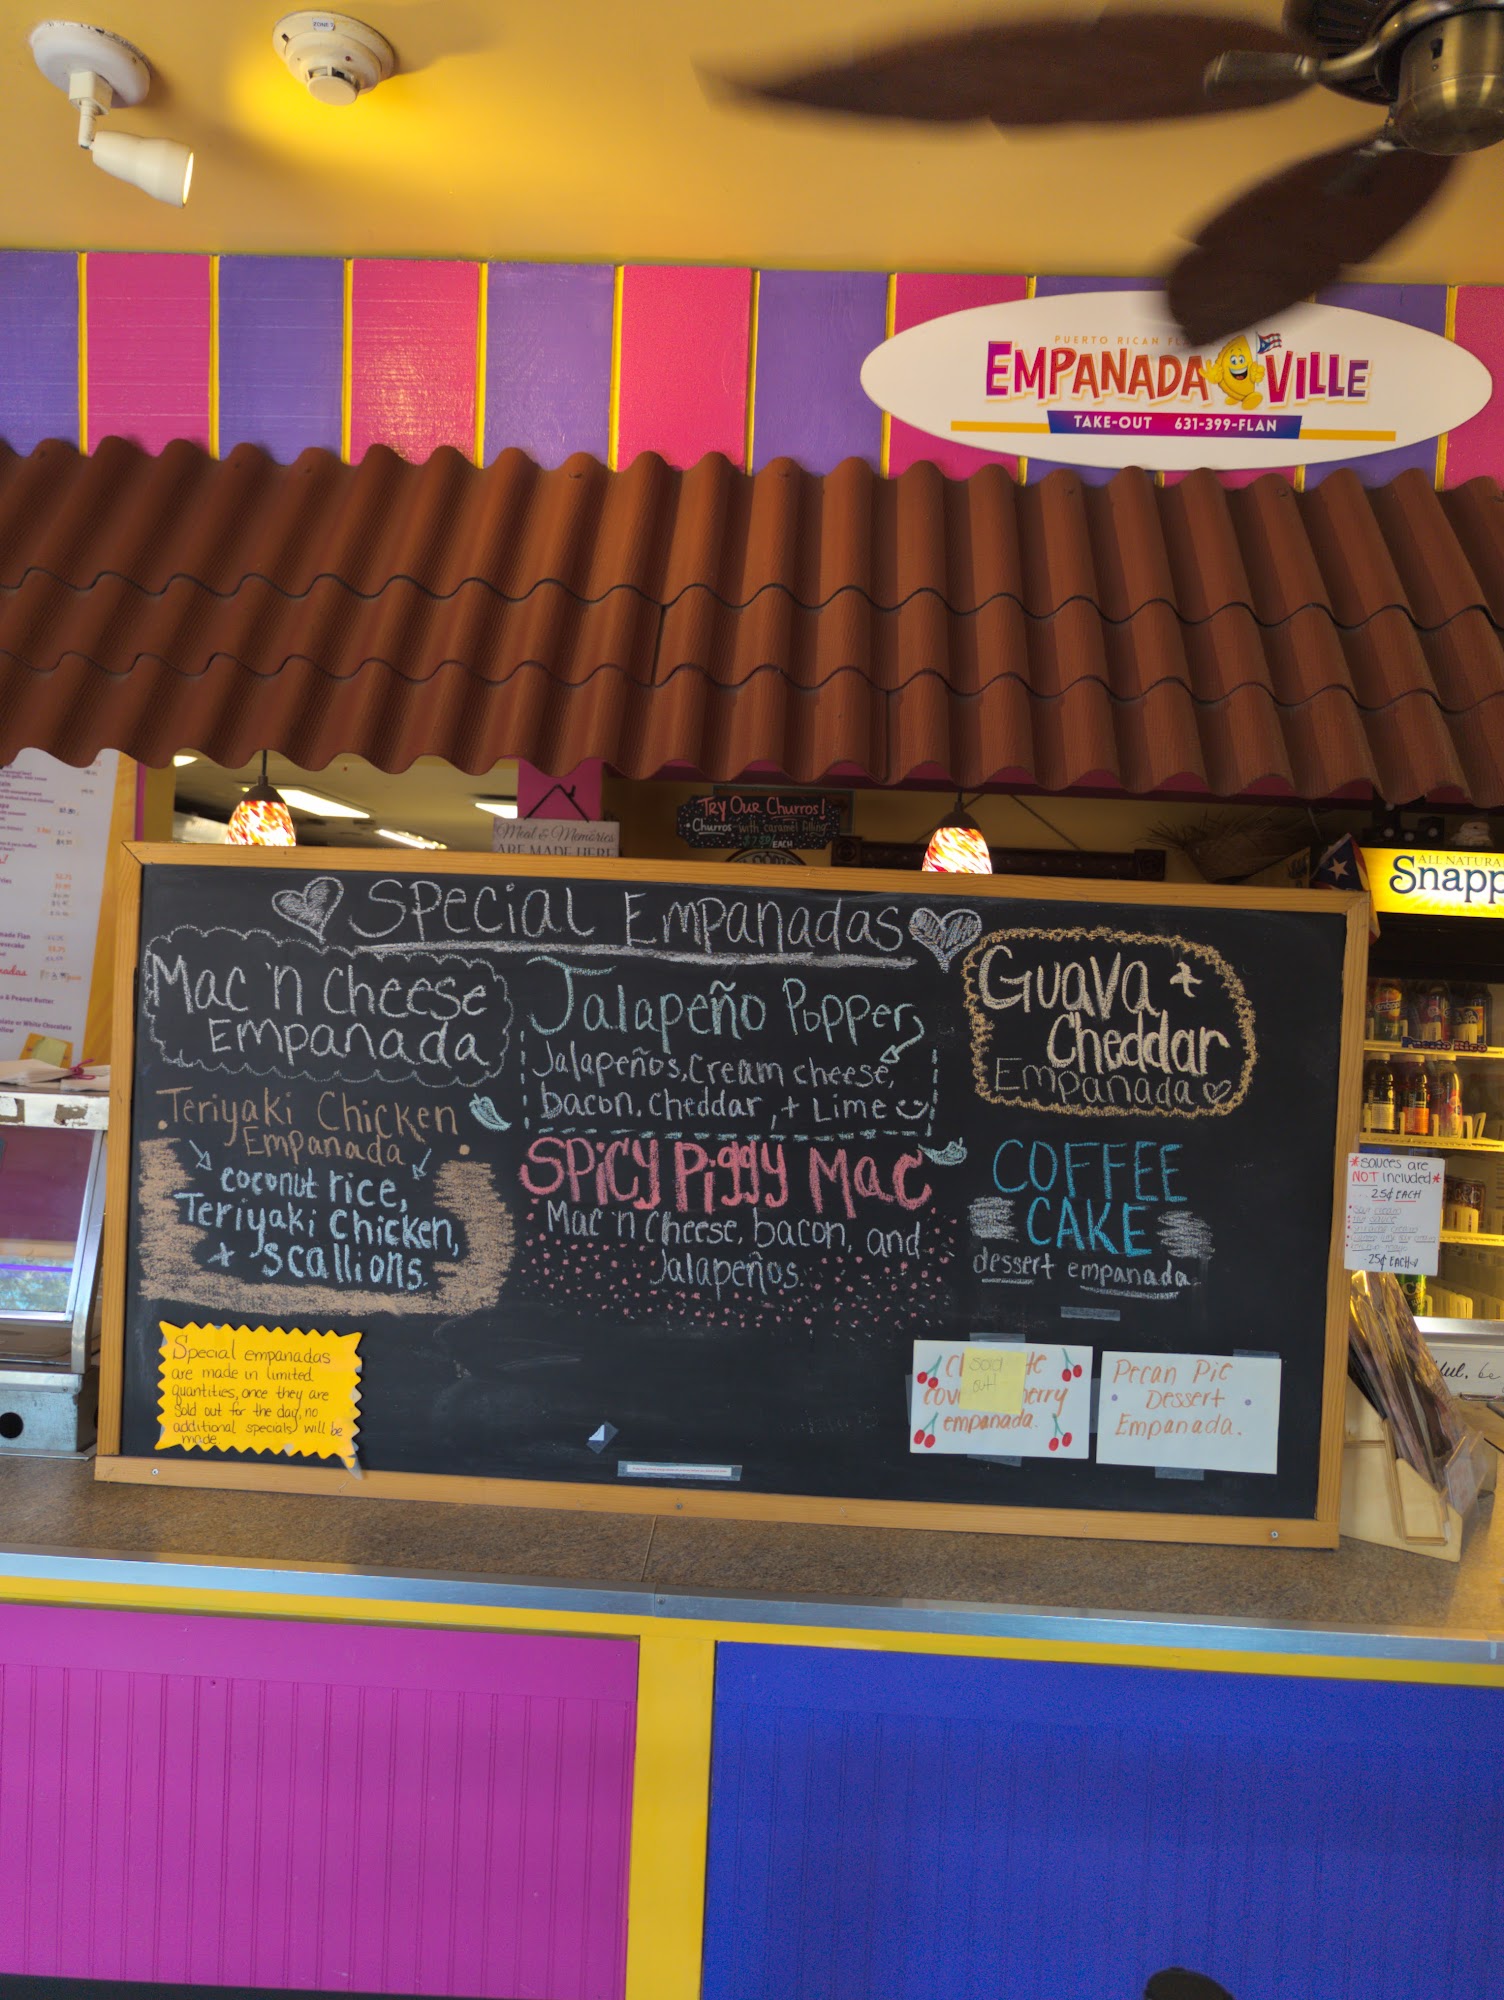 ZONE 7
PUERTO RICAN
EMPANADA VILLE
TAKE-OUT 631-399-FLAN
Try Our Churros!
Churros with caramel filling
EACH
Meal & Memories
ARE MADE HERE
ALL NATURA
Snapp
Special Empanadas
Mac 'n Cheese
Empanada
Teriyaki Chicken
Empanada
coconut rice,
Teriyaki Chicken,
+ scallions.
Jalapeño Popper
Jalapeños, Cream cheese,
bacon, cheddar, + Lime
Spicy Piggy Mac
Mac 'n Cheese, bacon, and
Jalapeños.
Guava +
Cheddar
Empanada
COFFEE
CAKE
dessert empanada
*sauces are
NOT included*
25¢ EACH
25¢ EACH
Special empanadas
are made in limited
quantities, once they are
sold out for the day, no
additional specials will be
made.
sold
out!
empanada.
Pecan Pie
Dessert
Empanada.